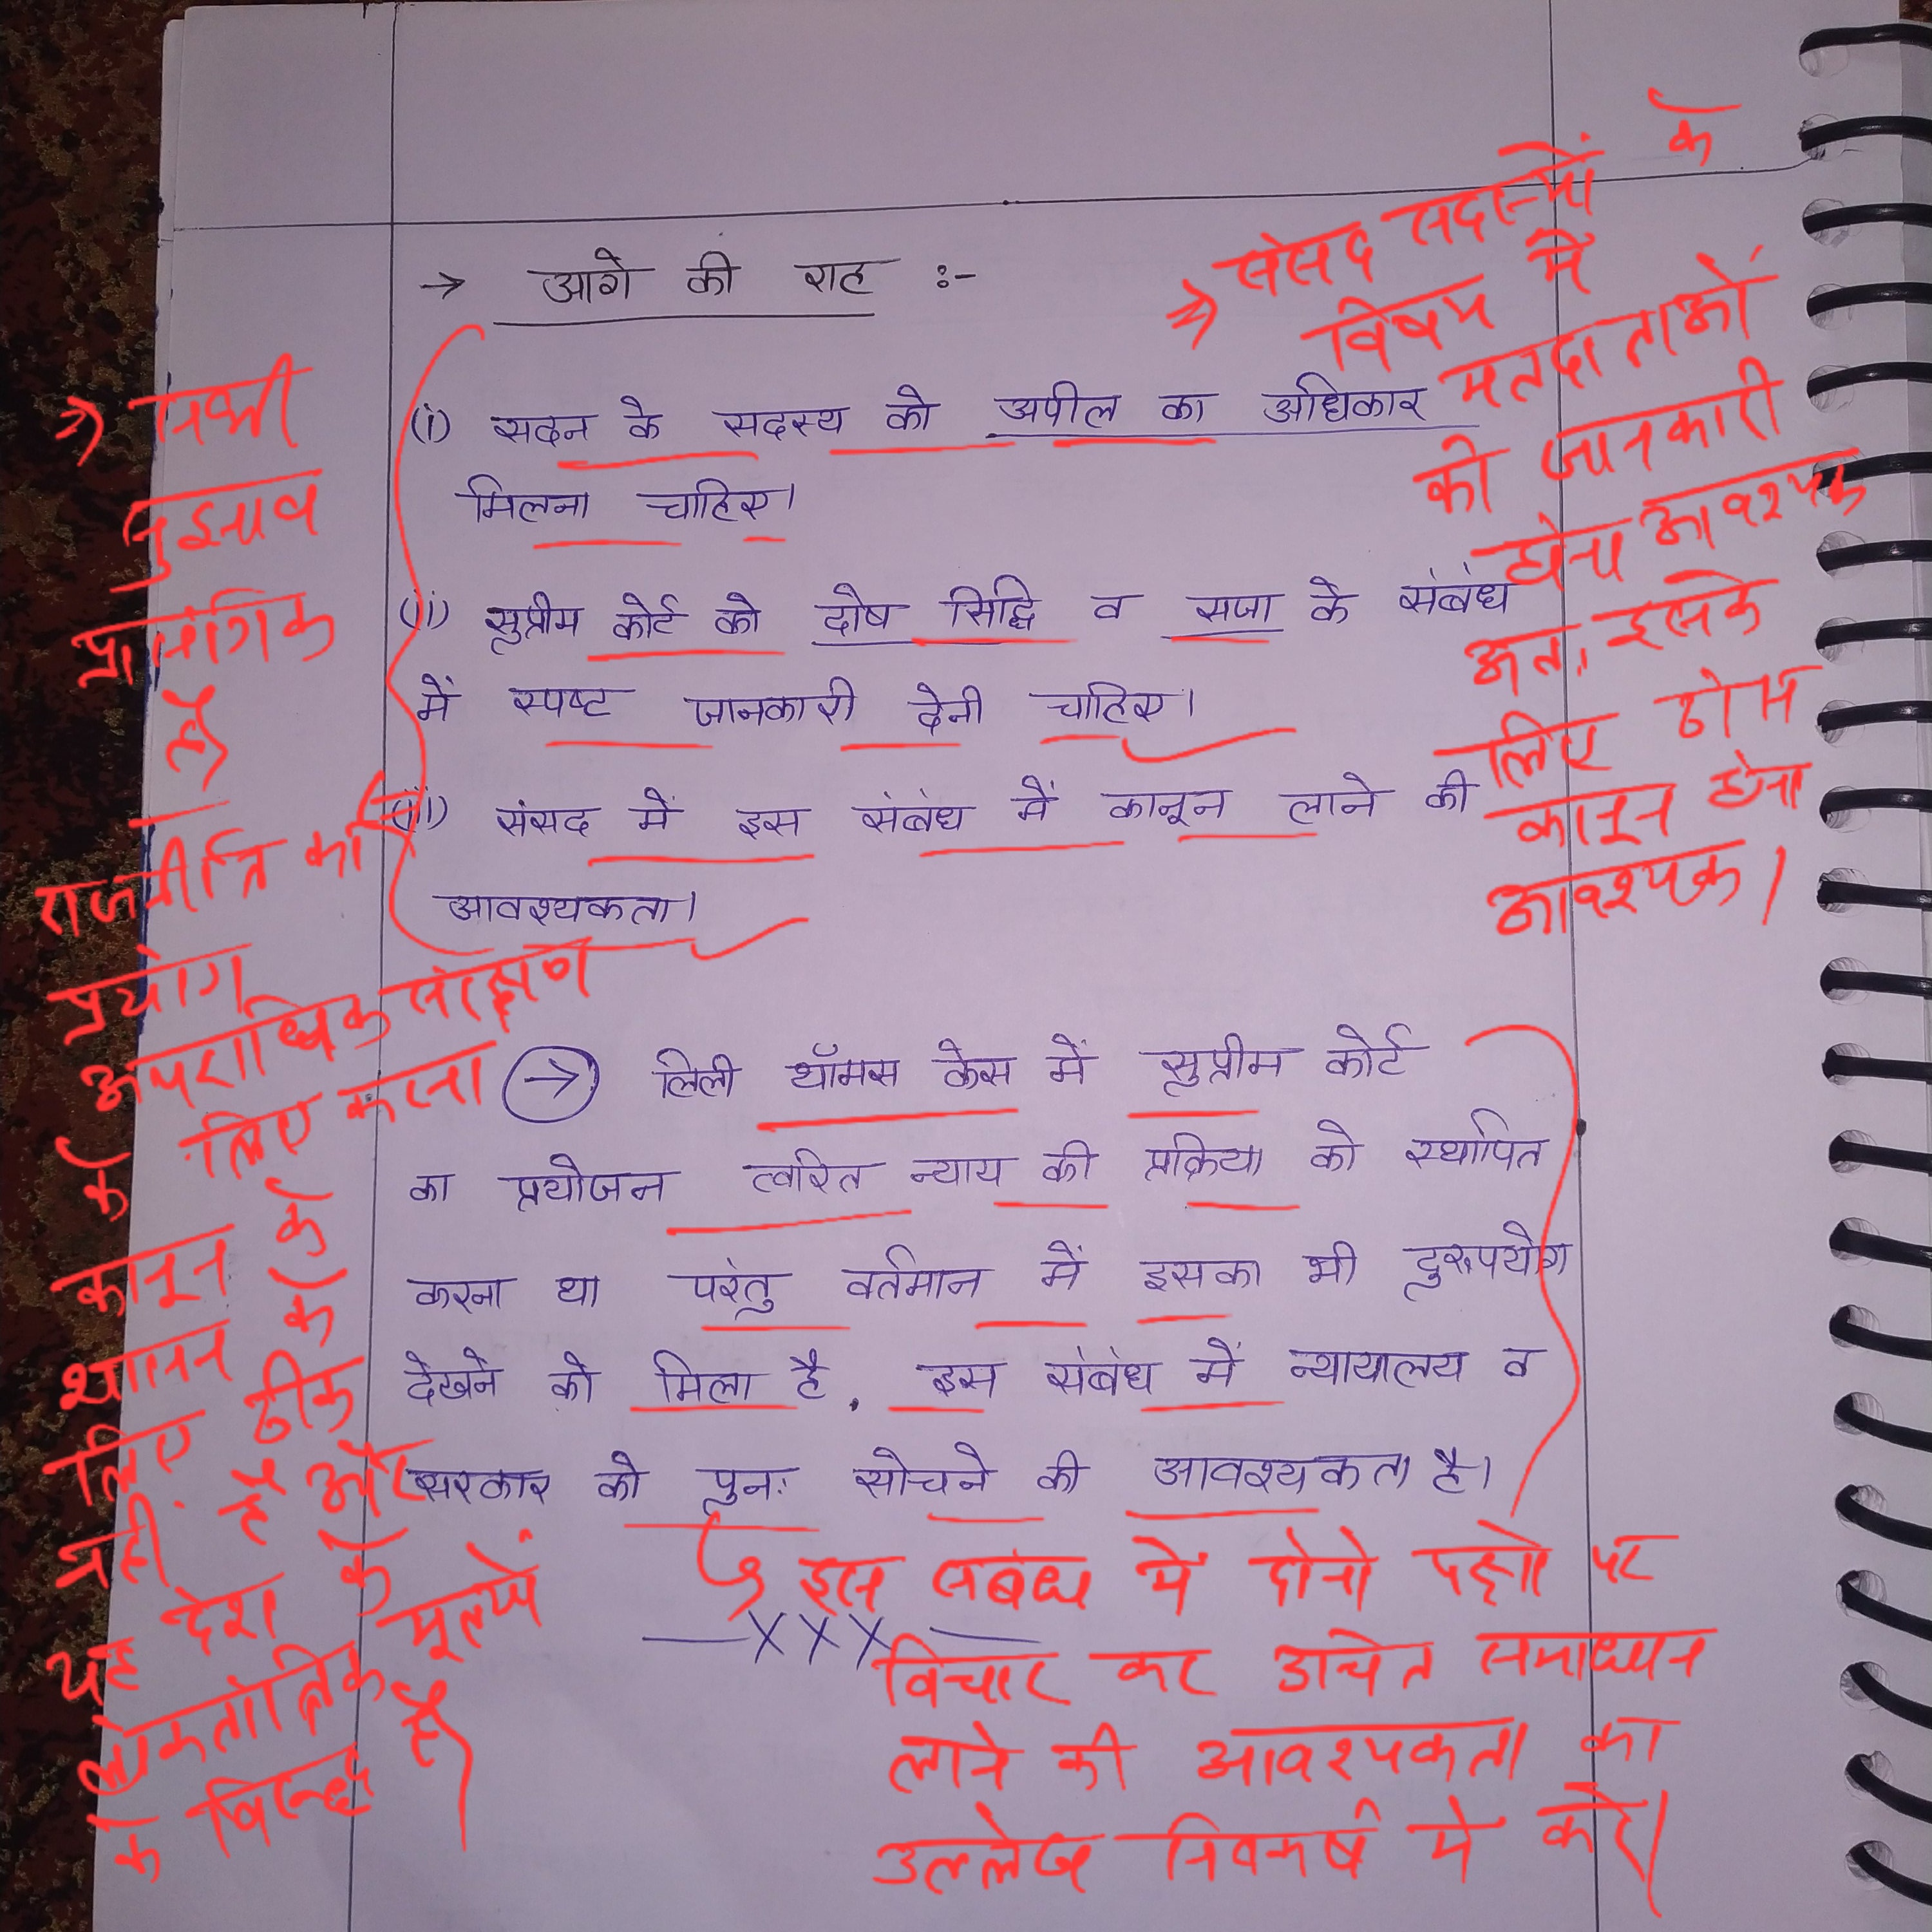 → आगे की राह :-
(i) सदन के सदस्य को अपील का अधिकार
मिलना चाहिए।
(ii) सुप्रीम कोर्ट को दोष सिद्धि व सजा के संबंध
में स्पष्ट जानकारी देनी चाहिए।
(iii) संसद में इस संबंध में कानून लाने की
आवश्यकता।
→ लिली थॉमस केस में सुप्रीम कोर्ट
का प्रयोजन त्वरित न्याय की प्रक्रिया को स्थापित
करना था परंतु वर्तमान में इसका भी दुरुपयोग
देखने को मिला है, इस संबंध में न्यायालय व
सरकार को पुनः सोचने की आवश्यकता है।
—xxx—
⇒ संसद सदस्यों के
विषय में
मतदाताओं
को जानकारी
होना आवश्यक
अतः इसके
लिए ठोस
कानून होना
आवश्यक।
⇒ सभी
सुझाव
प्रासंगिक
है
राजनीति का
प्रयोग
अपराधिक संरक्षण
के लिए करना
कानून के
शासन के
लिए ठीक
नहीं है और
यह देश के
लोकतांत्रिक मूल्यों
के विरुद्ध है।
इस संबंध में दोनो पक्षो पर
विचार कर उचित समाधान
लाने की आवश्यकता का
उल्लेख निष्कर्ष मे करें।